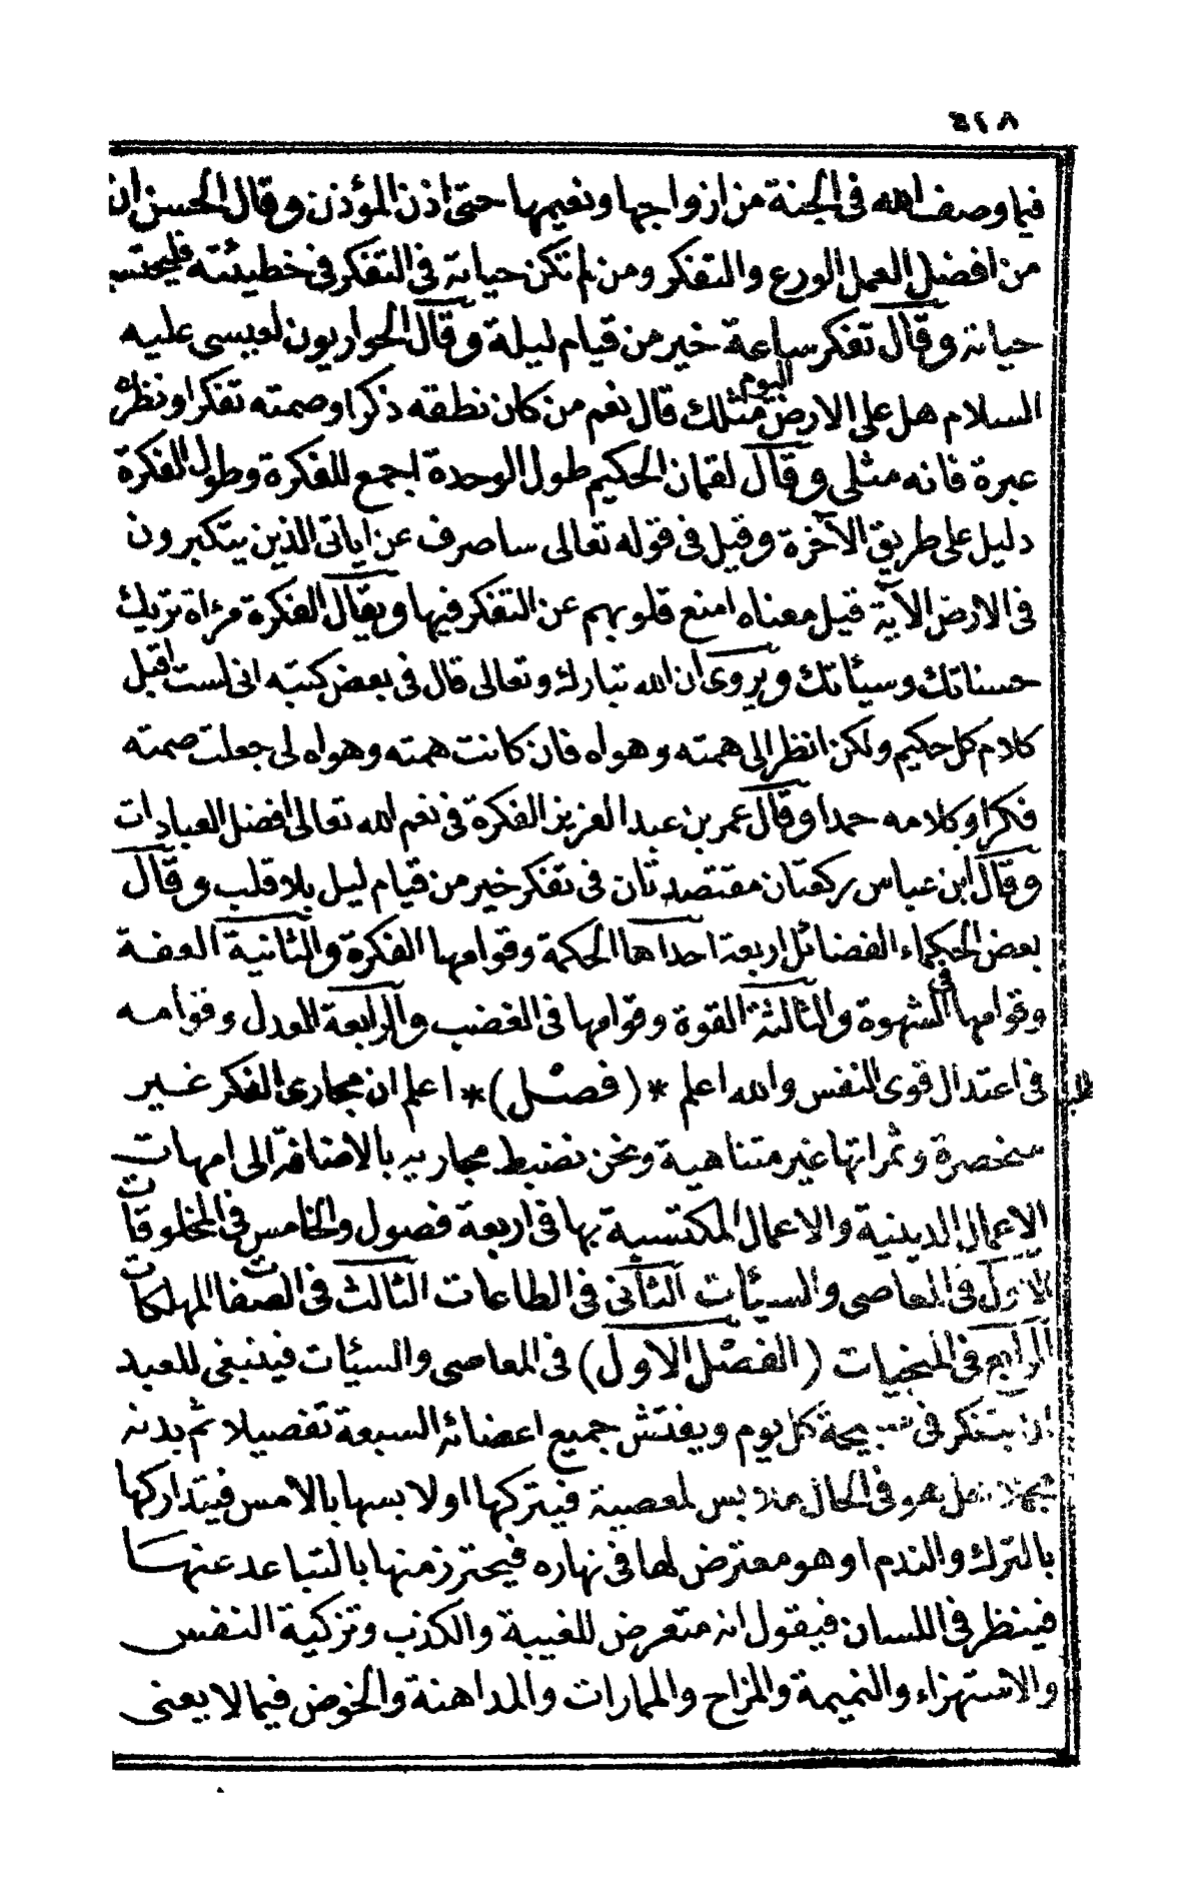 ٤٢٨
فيما وصف الله فى الجنة من ازواجها ونعيمها حتى اذن المؤذن وقال الحسن ان
من افضل العمل الورع والتفكر ومن لم تكن حياته فى التفكر فى خطيئته فليحتسب
حياته وقال تفكر ساعة خير من قيام ليلة وقال الحواريون لعيسى عليه
السلام هل على الارض اليوم مثلك قال نعم من كان نطقه ذكرا وصمته تفكرا ونظره
عبرة فانه مثلى وقال لقمان الحكيم طول الوحدة اجمع للفكرة وطول الفكرة
دليل على طريق الآخرة وقيل فى قوله تعالى ساصرف عن اياتى الذين يتكبرون
فى الارض الآية قيل معناه امنع قلوبهم عن التفكر فيها ويقال الفكرة مرٔاة تريك
حسناتك وسيئاتك ويروى ان الله تبارك وتعالى قال فى بعض كتبه انى لست اقبل
كلام كل حكيم ولكن انظر الى همته وهواه فان كانت همته وهواه لى جعلت صمته
فكرا وكلامه حمدا وقال عمر بن عبد العزيز الفكرة فى نعم الله تعالى افضل العبادات
وقال ابن عباس ركعتان مقتصدتان فى تفكر خير من قيام ليل بلا قلب وقال
بعض الحكماء الفضائل اربعة احداها الحكمة وقوامها الفكرة والثانية العفة
وقوامها فى الشهوة والثالثة القوة وقوامها فى الغضب والرابعة العدل وقوامه
فى اعتدال قوى النفس والله اعلم * (فصل) * اعلم ان مجارى الفكر غير
منحصرة وثمراتها غير متناهية ونحن نضبط مجاريه بالاضافة الى امهات
الاعمال الدينية والاعمال المكتسبة بها فى اربعة فصول والخامس فى المخلوقات
الاول فى المعاصى والسيئات الثانى فى الطاعات الثالث فى الصفات المهلكات
الرابع فى المنجيات (الفصل الاول) فى المعاصى والسيئات فينبغى للعبد
ان يتفكر فى صبيحة كل يوم ويفتش جميع اعضائه السبعة تفصيلا ثم بدنه
مجملا هل هو فى الحال ملابس لمعصية فيتركها او لابسها بالامس فيتداركها
بالترك والندم او هو معترض لها فى نهاره فيحترز منها بالتباعد عنها
فينظر فى اللسان فيقول انه متعرض للغيبة والكذب وتزكية النفس
والاستهزاء والنميمة والمزاح والممارات والمداهنة والخوض فيما لا يعنى